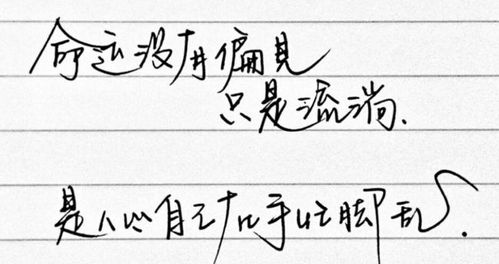 命运没有偏见
只是流淌.
是人心自己在手忙脚乱.